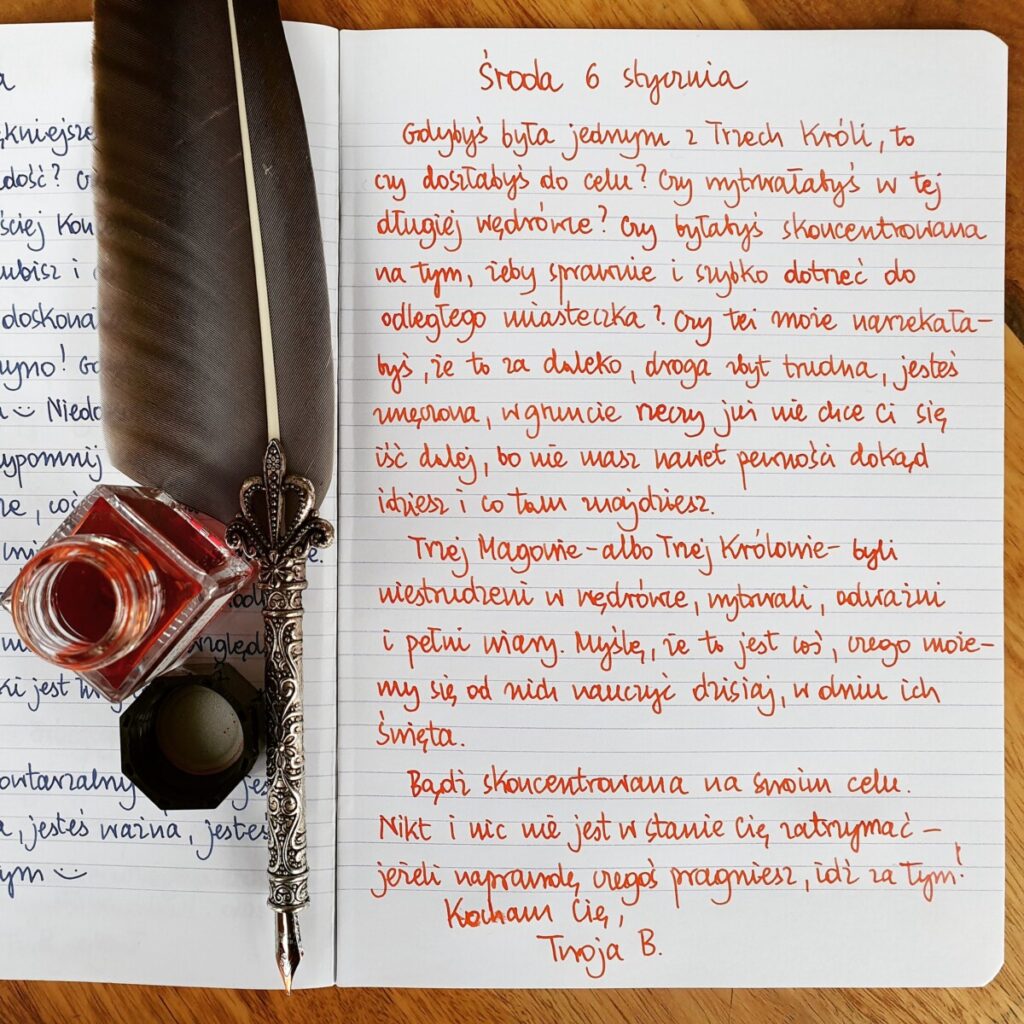 a
ękniejsze
ądość?
ściej
ubisz i
doskona
Niedo
ypomnij
, coś
względ
ki jest
owtarzalny
, jesteś ważna, jesteś
ym
Środa 6 stycznia
Gdybyś była jednym z Trzech Króli, to
czy doszłabyś do celu? Czy wytrwałabyś w tej
długiej wędrówce? Czy byłabyś skoncentrowana
na tym, żeby sprawnie i szybko dotrzeć do
odległego miasteczka? Czy też może narzekała-
byś, że to za daleko, droga zbyt trudna, jesteś
zmęczona, w gruncie rzeczy już nie chce Ci się
iść dalej, bo nie masz nawet pewności dokąd
idziesz i co tam znajdziesz.
Trzej Magowie - albo Trzej Królowie - byli
niestrudzeni w wędrówce, wytrwali, odważni
i pełni wiary. Myślę, że to jest coś, czego może-
my się od nich nauczyć dzisiaj, w dniu ich
Święta.
Bądź skoncentrowana na swoim celu.
Nikt i nic nie jest w stanie Cię zatrzymać -
jeżeli naprawdę czegoś pragniesz, idź za tym!
Kocham Cię,
Twoja B.